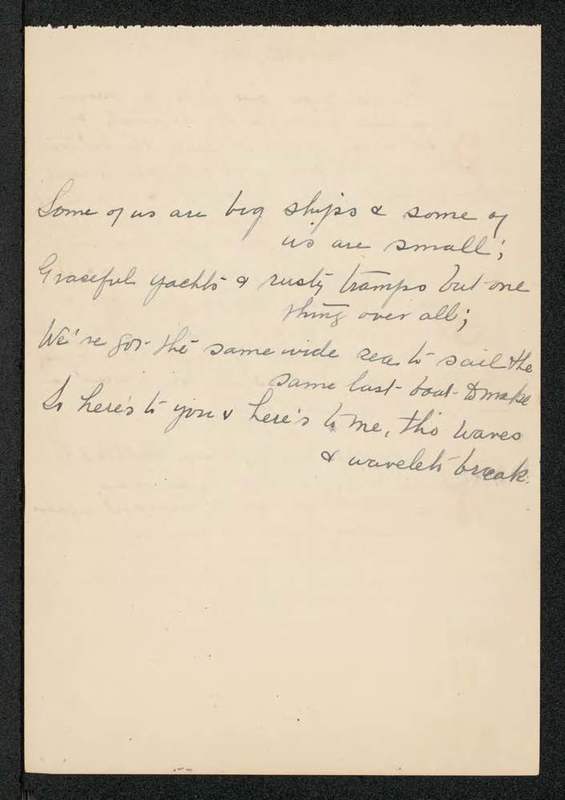 Some of us are big ships & some of
us are small;
Graceful yachts & rusty tramps but one
thing over all;
We've got the same wide sea to sail the
same last boat to make
So here's to you & here's to me, tho waves
& wavelets break.